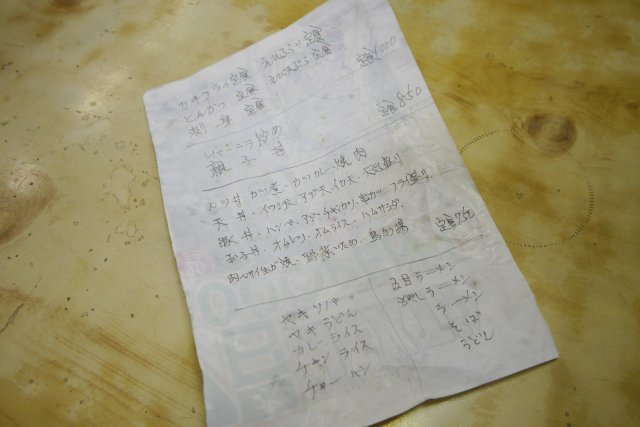 カキフライ定食 えびふらい定食
とんかつ 定食 えび天ぷら定食 定食1,000
刺身 定食
しょうが炒め
親子丼 定食850
カツ丼、カツ煮、カツカレー 焼肉
天丼、イカ天、アジ天、イカ天、天ぷら盛り
豚丼、ハンバ、アジ、チキンカツ、串カツ、フライ盛り
玉子丼、オムレツ、オムライス、ハムサラダ、
肉生が焼、野菜いため、 定食750
ヤキソバ
ヤキうどん
カレーライス
チキンライス
チャーハン
五目ラーメン
もやしラーメン
ラーメン
そば
うどん